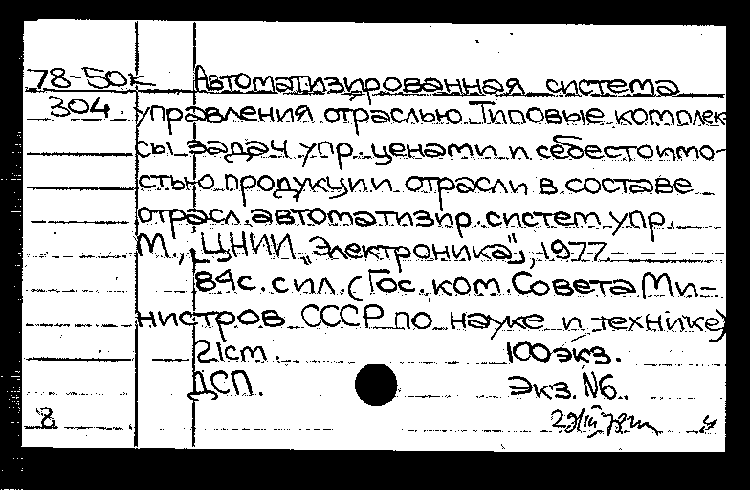 78-50к Автоматизированная система
304. управления отраслью. Типовые комплек
сы задач упр. ценами и себестоимо-
стью продукции отрасли в составе
отрасл. автоматизир. систем упр.
М., ЦНИИ "Электроника", 1977.
84с. с ил. (Гос. ком. Совета Ми-
нистров СССР по науке и технике)
21см. 100экз.
ДСП. Экз. №6.
8